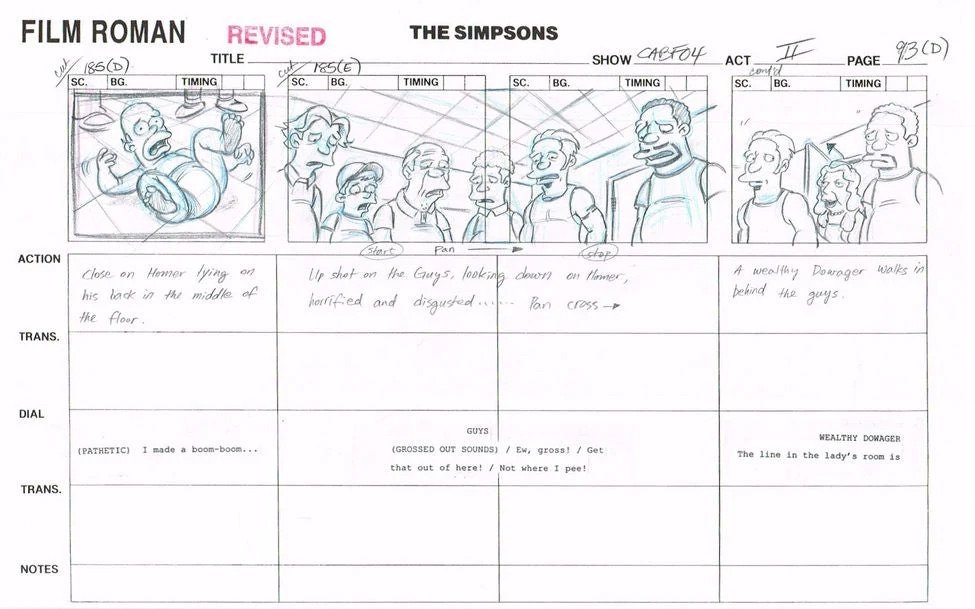 FILM ROMAN REVISED THE SIMPSONS
TITLE SHOW CABF04 ACT II PAGE 93(D)
cut 185(D) cut 185(E) cont'd
SC. BG. TIMING SC. BG. TIMING SC. BG. TIMING SC. BG. TIMING
start Pan stop
ACTION
Close on Homer lying on
his back in the middle of
the floor.
Up shot on the Guys, looking down on Homer,
horrified and disgusted...... Pan cross →
A wealthy Dowager walks in
behind the guys.
TRANS.
DIAL
(PATHETIC) I made a boom-boom...
GUYS
(GROSSED OUT SOUNDS) / Ew, gross! / Get
that out of here! / Not where I pee!
WEALTHY DOWAGER
The line in the lady's room is
TRANS.
NOTES